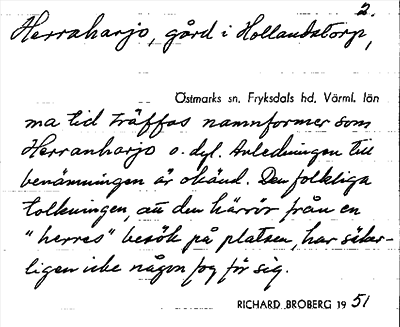 2.
Herraharjo, gård i Hollandstorp,
Östmarks sn. Fryksdals hd. Värml. län
ma tid träffas namnformer som
Herranharjo o. dyl. Anledningen till
benämningen är okänd. Den folkliga
tolkningen, att den härrör från en
"herres" besök på platsen, har säker-
ligen icke någon fog för sig.
RICHARD BROBERG 1951